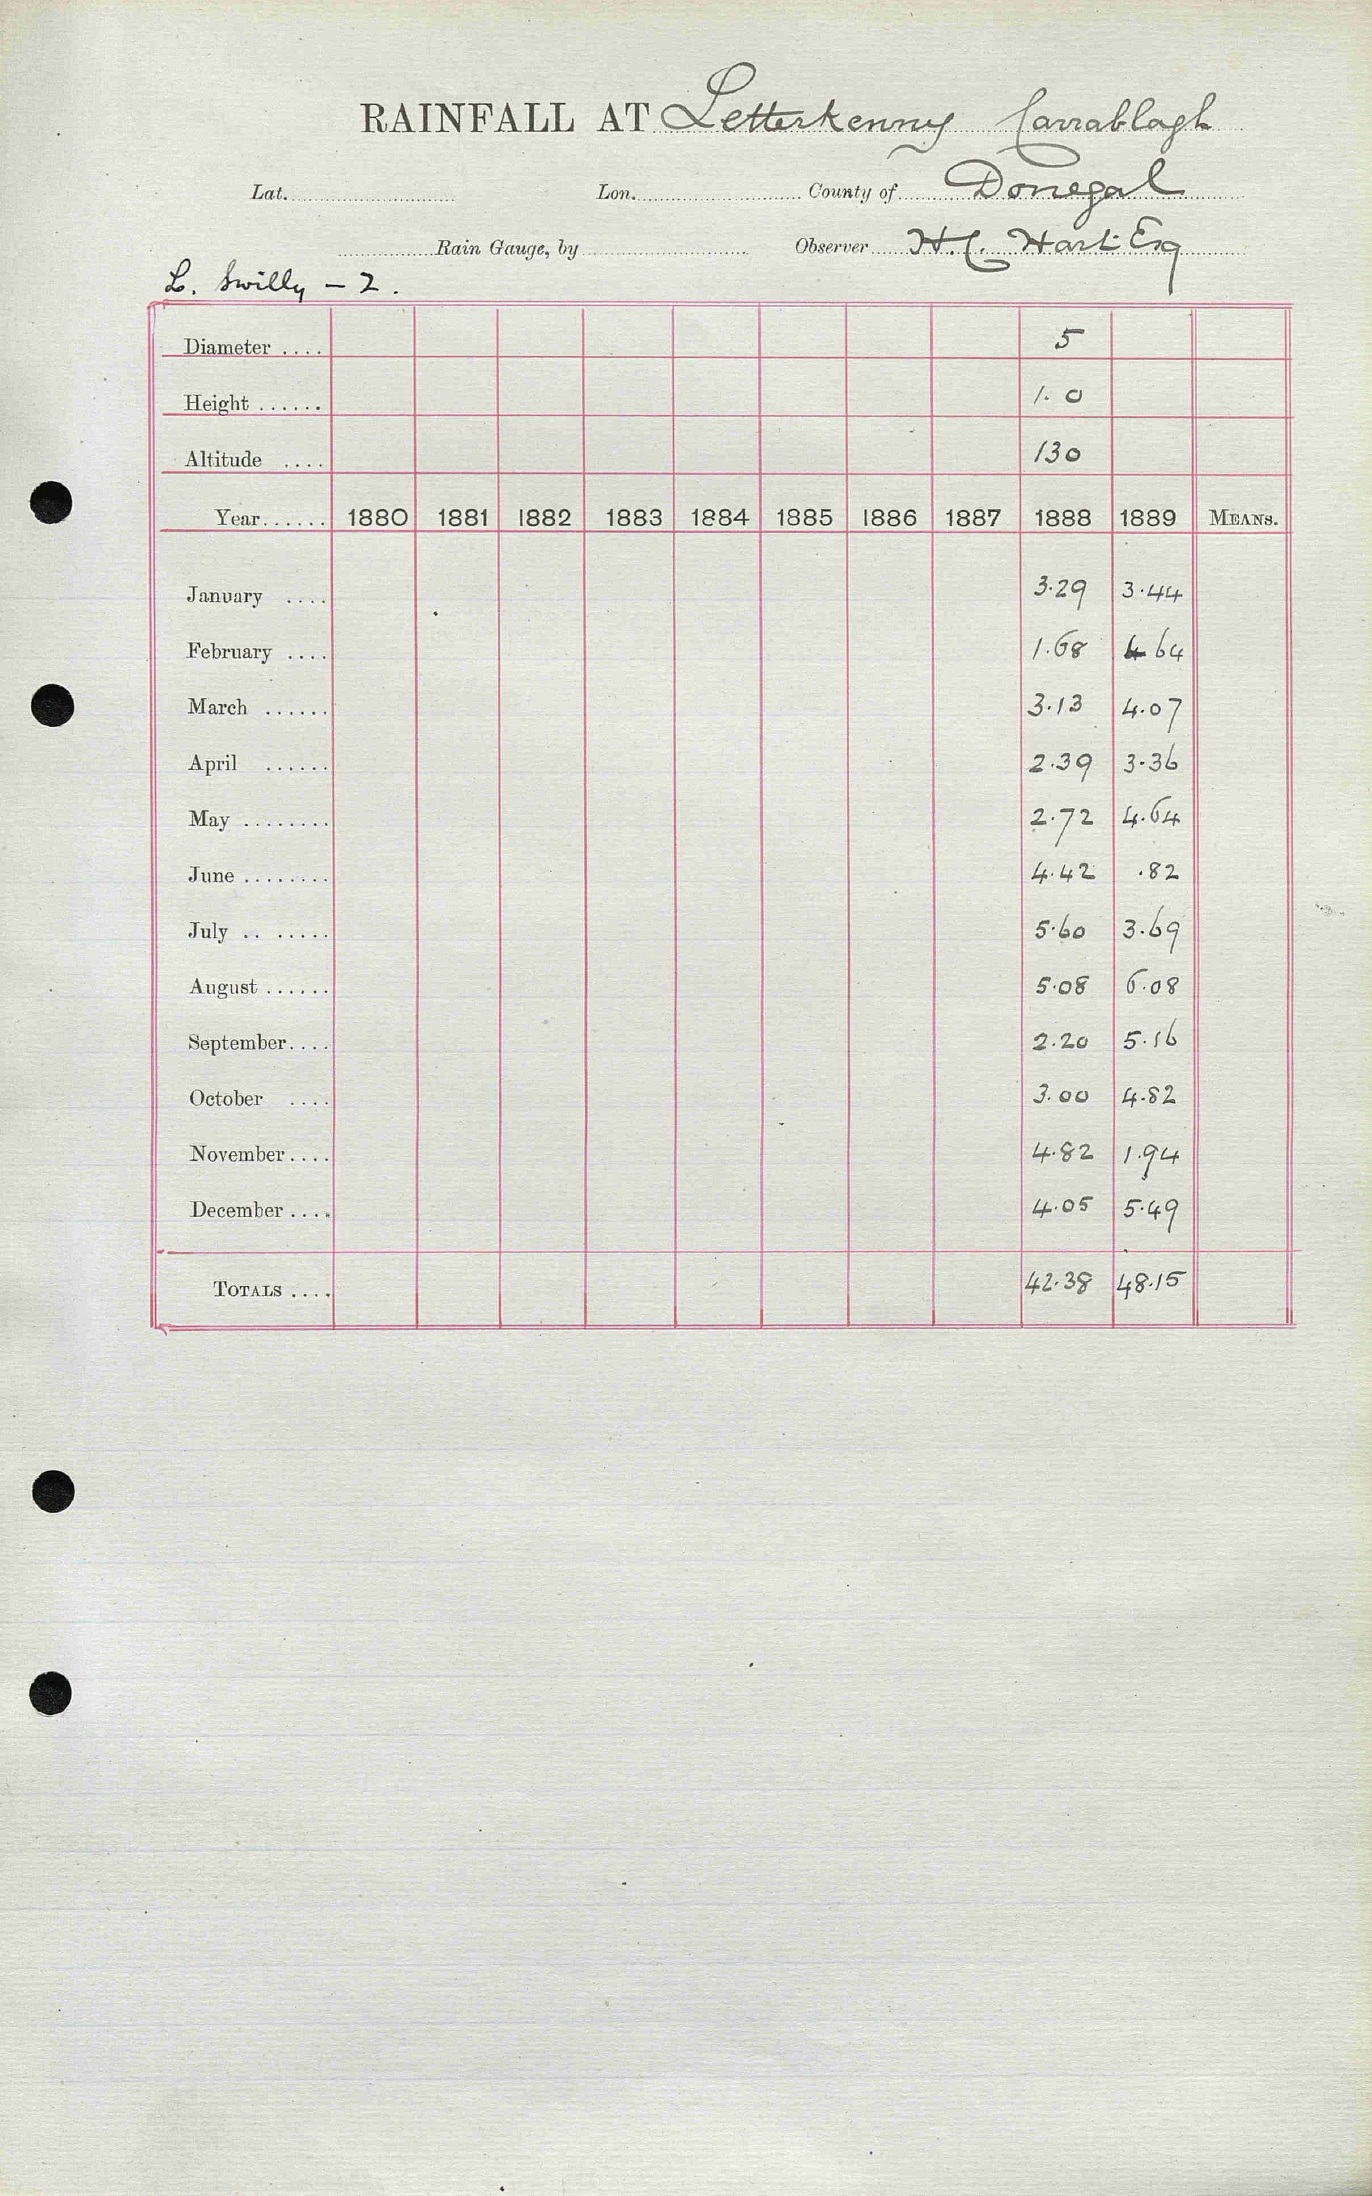 RAINFALL AT Letterkenny Carrablagh
Lat. Lon. County of Donegal
Rain Gauge, by Observer H.C. Hart Esq
L. Swilly – 2.
Diameter .... 5
Height ...... 1.0
Altitude .... 130
Year...... 1880 1881 1882 1883 1884 1885 1886 1887 1888 1889 MEANS.
January .... 3.29 3.44
February .... 1.68 4 64
March ...... 3.13 4.07
April ...... 2.39 3.36
May ........ 2.72 4.64
June ........ 4.42 .82
July .. ..... 5.60 3.69
August ...... 5.08 6.08
September.... 2.20 5.16
October .... 3.00 4.82
November.... 4.82 1.94
December .... 4.05 5.49
TOTALS .... 42.38 48.15